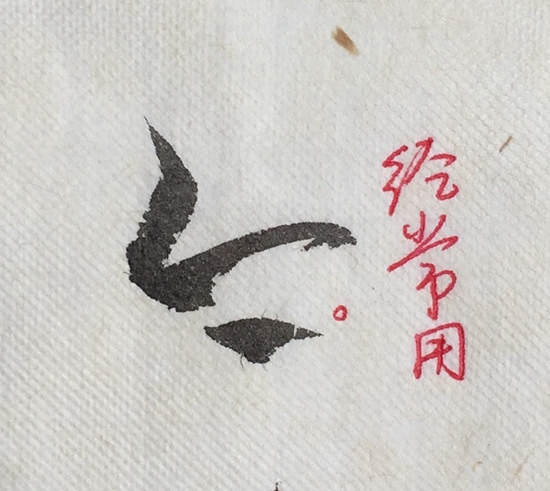 经常用